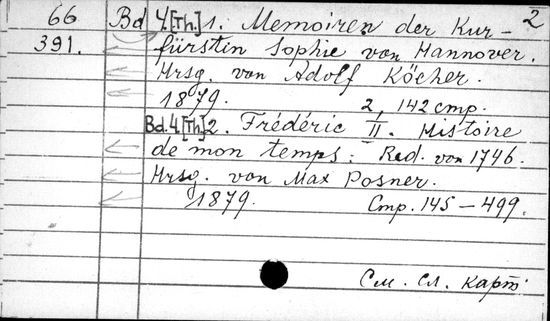 66 Bd 4.[Th.]1. Memoiren der Kur- 2
391. fürstin Sophie von Hannover.
Hrsg. von Adolf Köcher.
1879. 2, 142 стр.
Bd.4.[Th.]2. Frédéric II. Histoire
de mon temps. Red. von 1746.
Hrsg. von Max Posner.
1879. Стр. 145–499.
См. сл. карт.